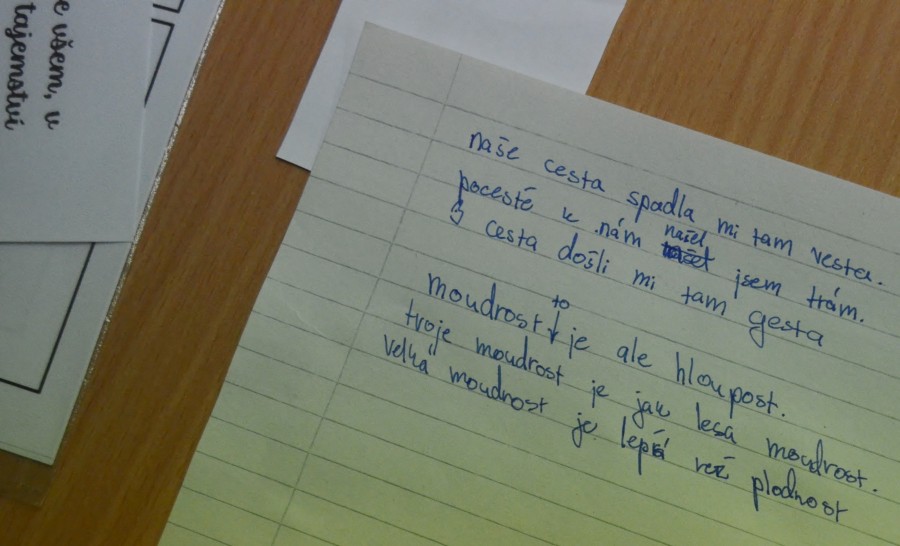 e všem, v
tajemství
naše cesta spadla mi tam vesta.
pocestě k nám našel jsem trám.
cesta došli mi tam gesta
to
moudrost je ale hloupost.
tvoje moudrost je jak lesa moudrost.
velká moudnost je lepší než plodnost